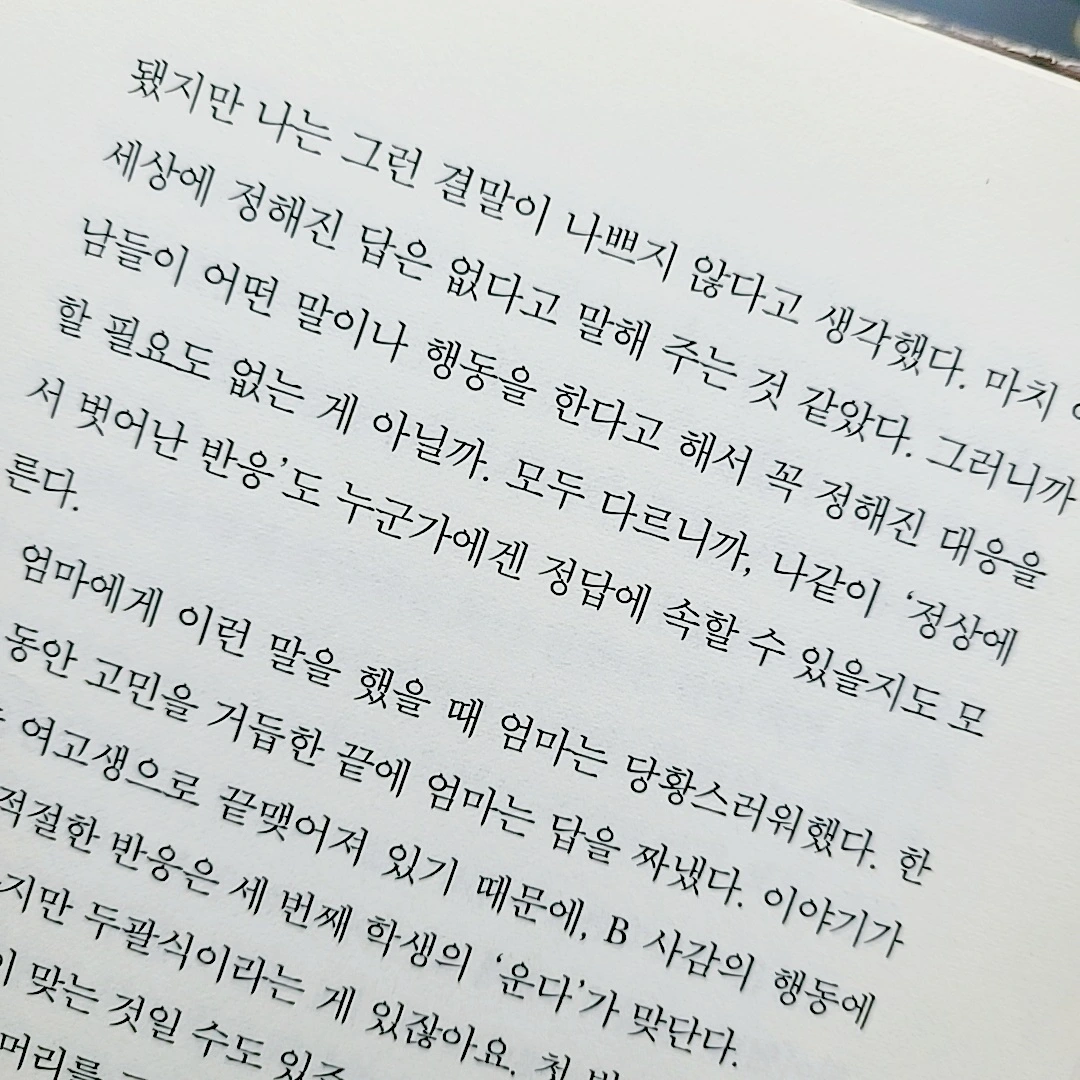 됐지만 나는 그런 결말이 나쁘지 않다고 생각했다. 마치
세상에 정해진 답은 없다고 말해 주는 것 같았다. 그러니까
남들이 어떤 말이나 행동을 한다고 해서 꼭 정해진 대응을
할 필요도 없는 게 아닐까. 모두 다르니까, 나같이 ‘정상에
서 벗어난 반응’도 누군가에겐 정답에 속할 수 있을지도 모
른다.
엄마에게 이런 말을 했을 때 엄마는 당황스러워했다. 한
동안 고민을 거듭한 끝에 엄마는 답을 짜냈다. 이야기가
여고생으로 끝맺어져 있기 때문에, B 사감의 행동에
적절한 반응은 세 번째 학생의 ‘운다’가 맞단다.
두괄식이라는 게 있잖아요. 첫
맞는 것일 수도
머리를